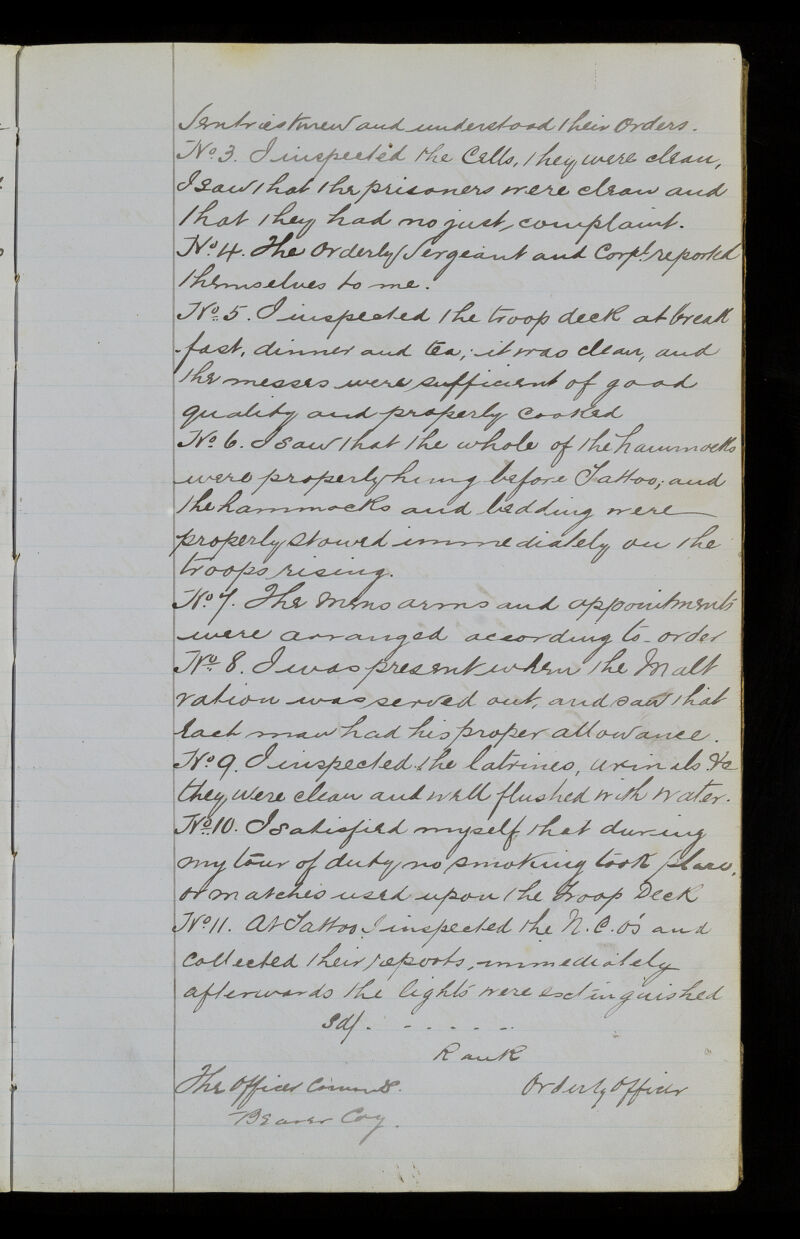 Sentries knew and understood their Orders.
No 3. I inspected the Cells, they were clean,
I saw that the prisoners were clean and
that they had no just complaint.
No 4. The Orderly Sergeant and Corpl. reported
themselves to me.
No 5. I inspected the troop deck at break
fast, dinner and tea; it was clean, and
the messes were sufficient of good
quality and properly cooked
No 6. I saw that the whole of the hammocks
were properly hung before Tattoo; and
the hammocks and bedding were
properly stowed immediately on the
troops rising.
No 7. The mens arms and appointments
were arranged according to order
No 8. I was present when the Malt
ration was served out, and saw that
each man had his proper allowance.
No 9. I inspected the latrines, urinals &c
they were clean and well flushed with water.
No 10. I satisfied myself that during
my tour of duty no smoking took place,
or matches used upon the Troop Deck
No 11. At Tattoo I inspected the N.C.O's and
collected their reports, immediately
afterwards the lights were extinguished
Sd/. - - - - - -
Rank
The Officer Commdg. Orderly Officer
Bearer Coy.